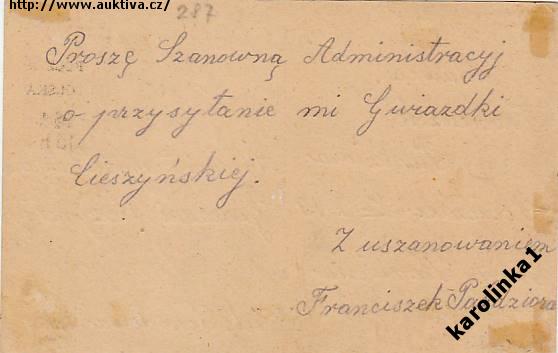 http://www.auktiva.cz/
287
Proszę Szanowną Administracyj
o przysyłanie mi Gwiazdki
Cieszyńskiej.
Z uszanowaniem
Franciszek
karolinka1